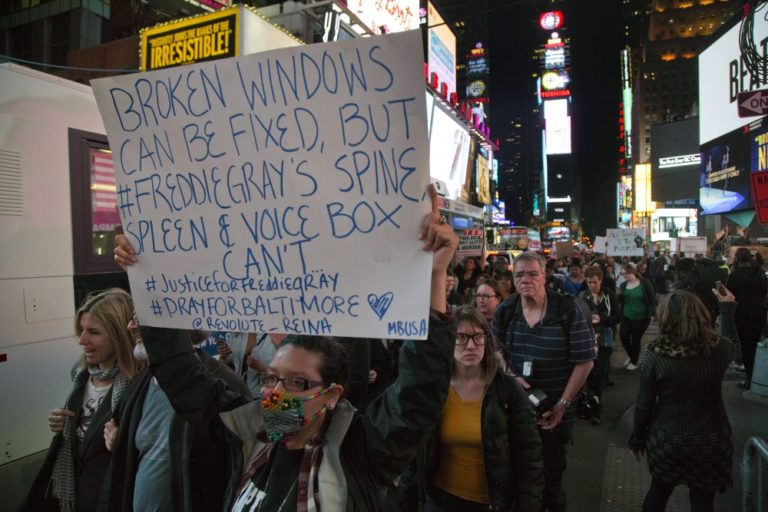 IRRESISTIBLE!"
BROKEN WINDOWS
CAN BE FIXED, BUT
#FREDDIEGRAY'S SPINE,
SPLEEN & VOICE BOX
CAN'T
#JUSTICEFORFREDDIEGRAY
#PRAYFORBALTIMORE
@REVOLUTE_REINA
MBUSA
TOSHIBA
ON